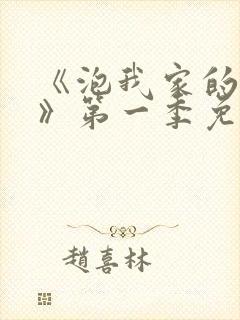 《泡我家的
》第一季免
趙喜林